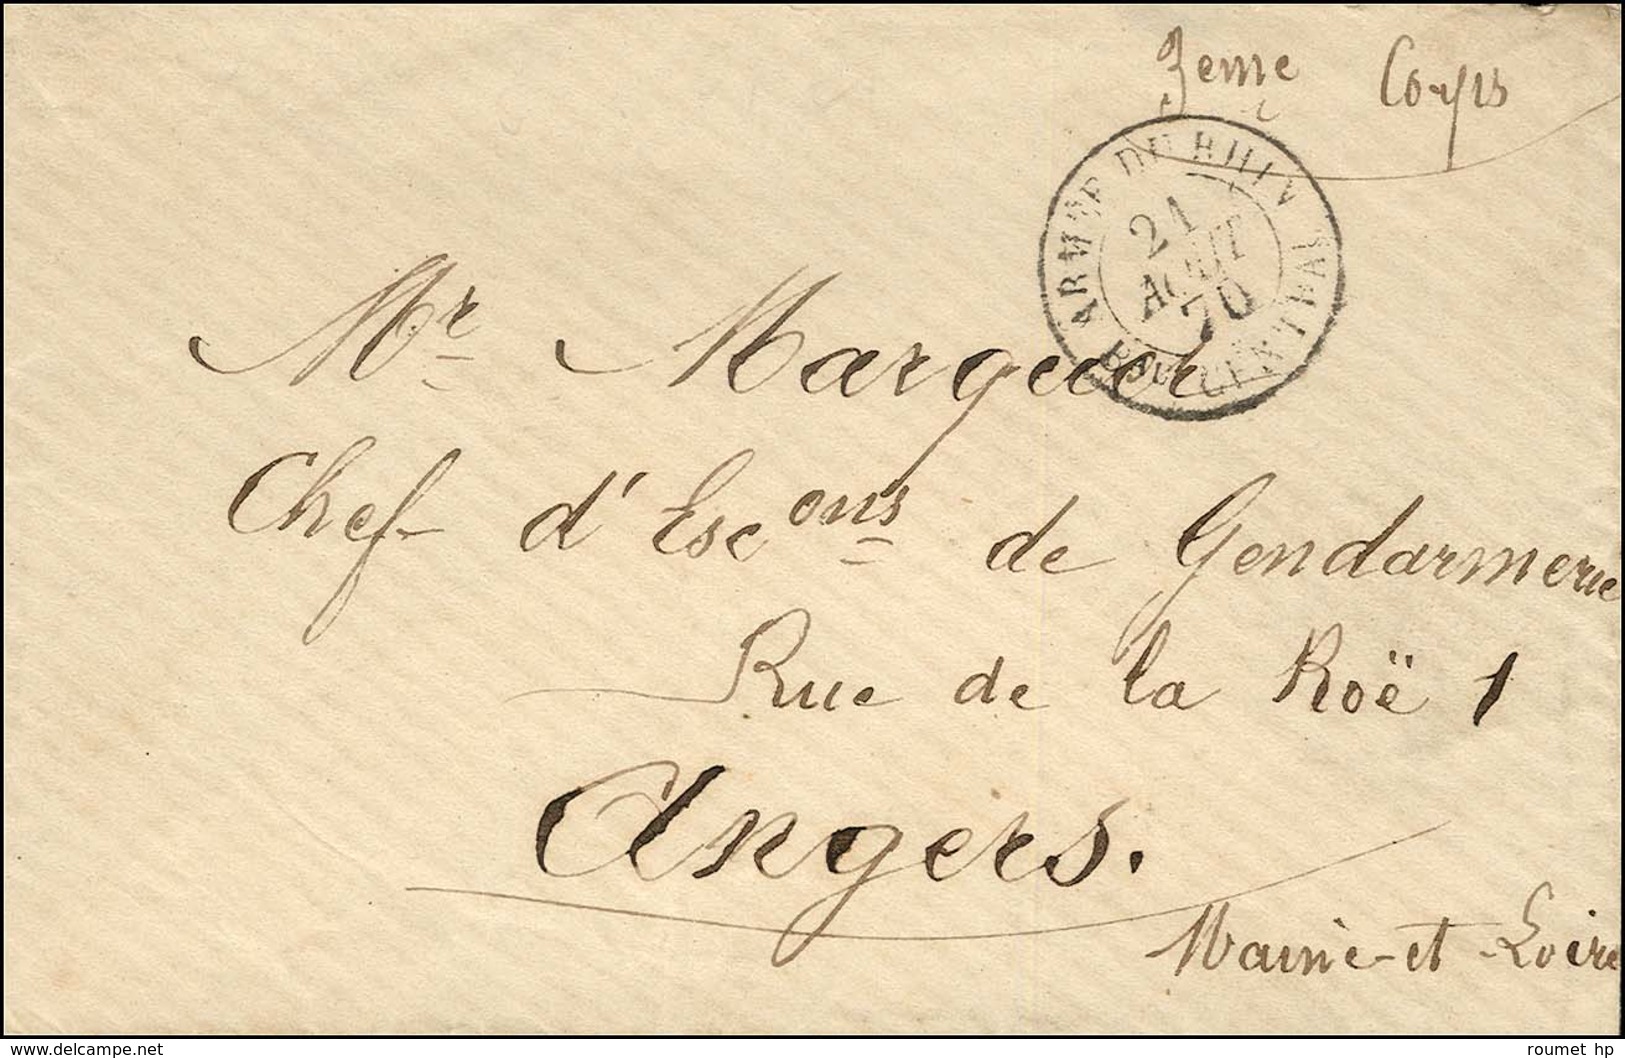 3eme Corps
ARMÉE DU RHIN
21
AOUT
70
BAU CENTRAL
Mr Marguer
Chef d'Escons de Gendarmerie
Rue de la Roë 1
Angers.
Maine-et-Loire
www.delcampe.net
roumet hp